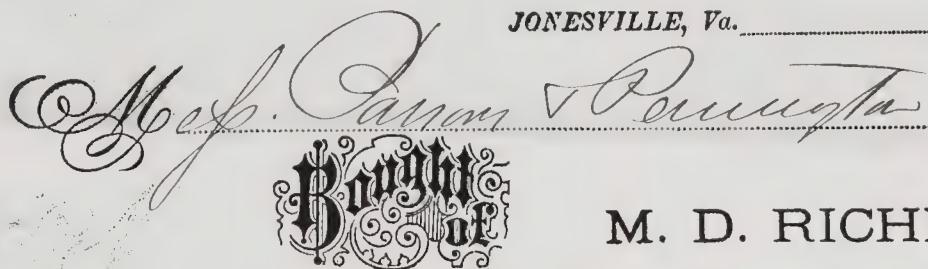 JONESVILLE, Va.
Mess. & Pennington
Bought of
M. D. RICH